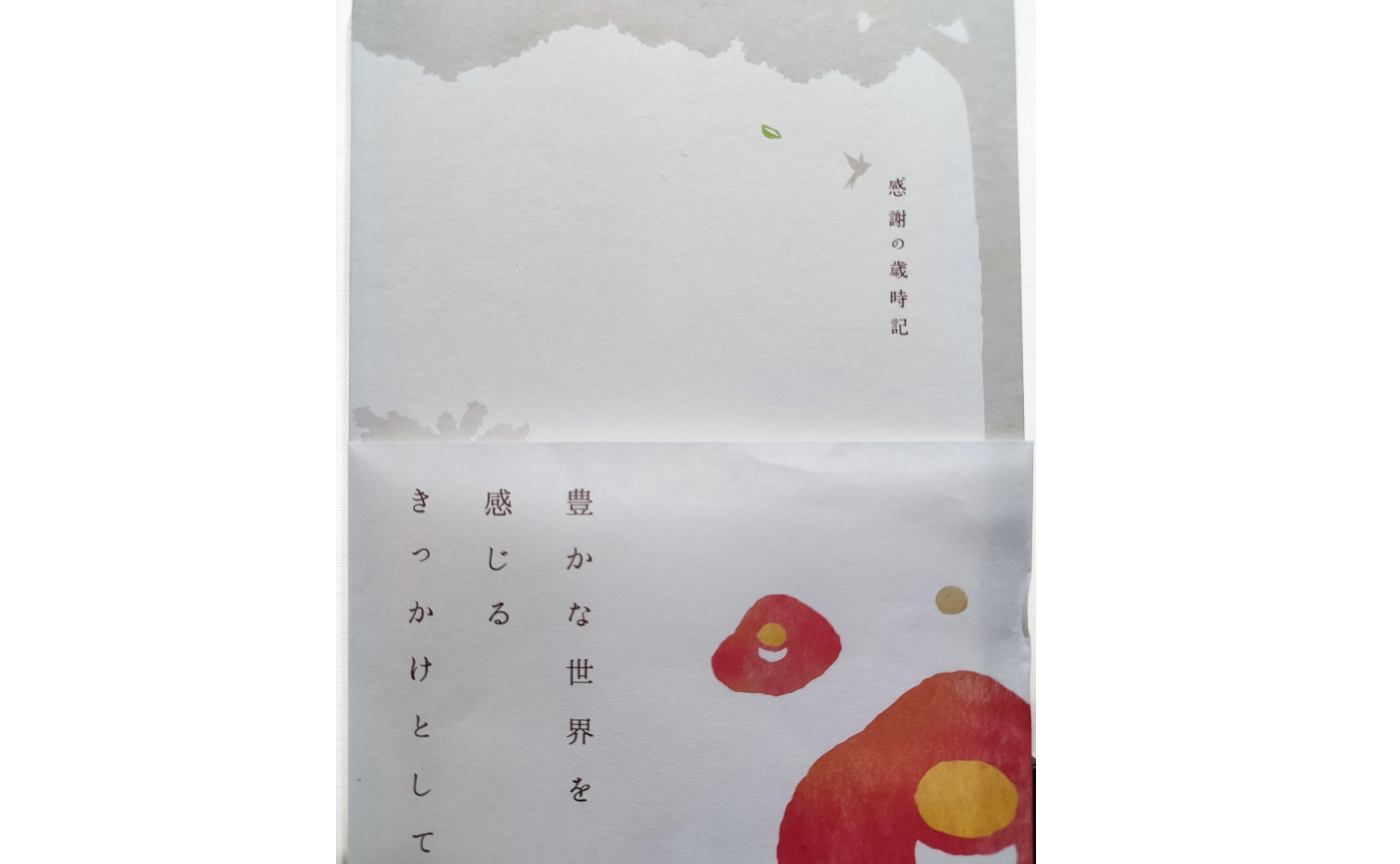 感謝の歳時記
豊かな世界を
感じる
きっかけとして